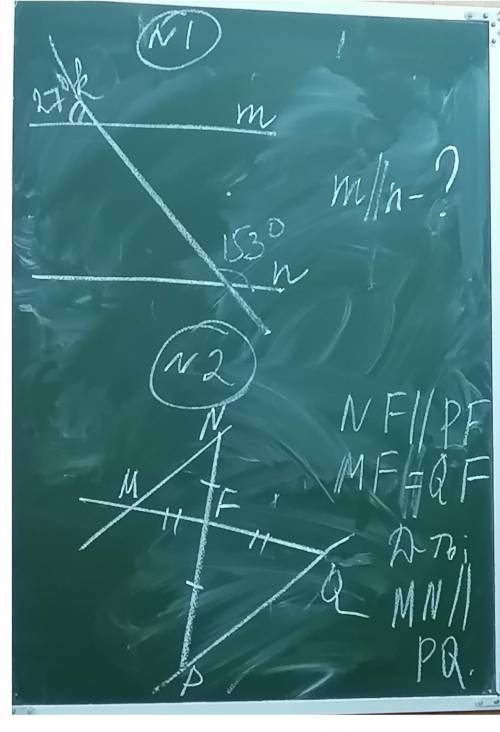 N1
27° k
m
m//n-?
153°
n
N2
N
NF//PF
M
F
MF=QF
Д-ть;
Q
MN//
PQ.
P